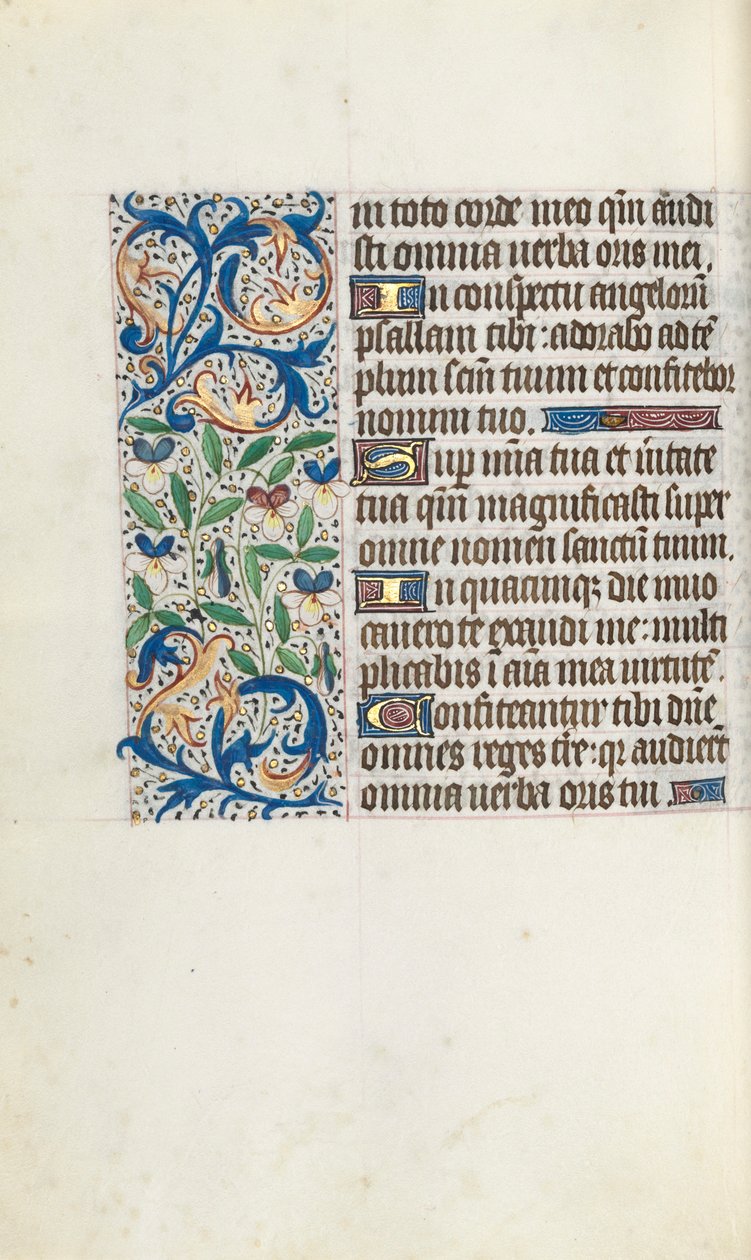 in toto corde meo qm̄ audi
sti omnia uerba oris mei.
In conspectu angelorū
psallam tibi: adorabo ad tē
plum scm̄ tuum et confitebor
nomini tuo.
Sup mīa tua et ūitate
tua qm̄ magnificasti super
omne nomen sanctū tuum.
In quacumqꝫ die inuo
cauero te exaudi me: multi
plicabis ī aīa mea uirtutē.
Confiteantur tibi dn̄e
omnes reges tr̄e: qr audierūt
omnia uerba oris tui.